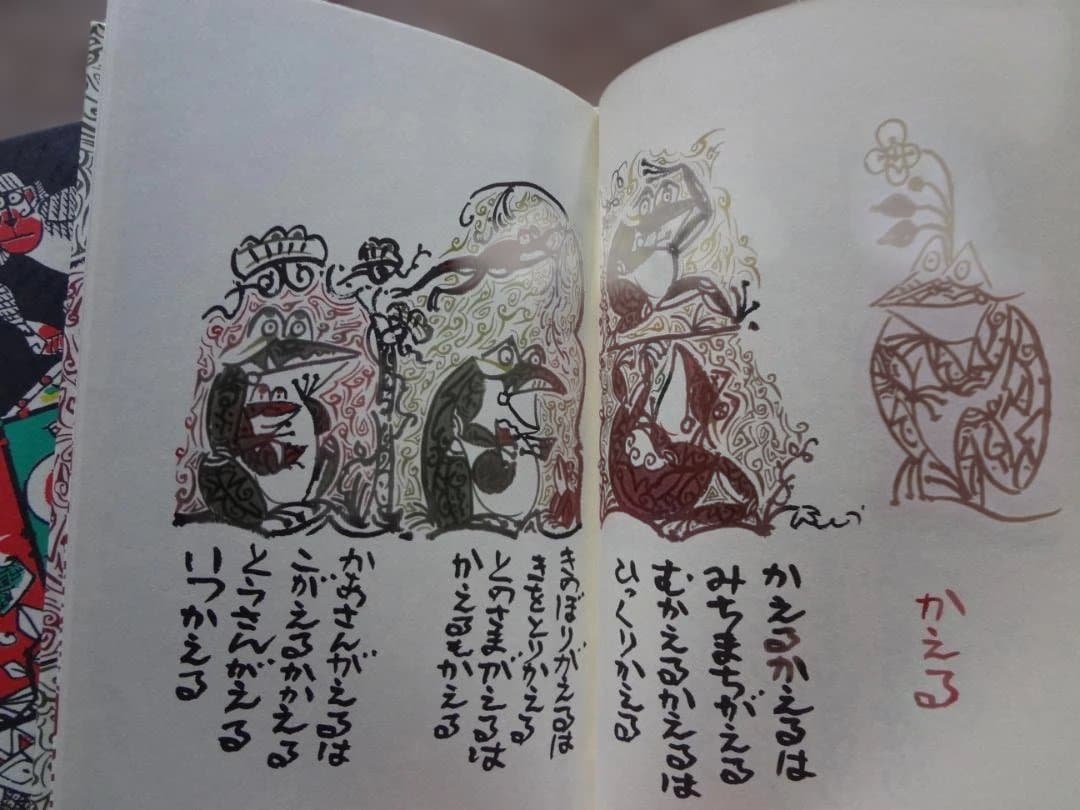 かえる
かえるかえるは
みちまちがえる
むかえるかえるは
ひっくりかえる
きのぼりがえるは
きをとりかえる
とのさまがえるは
かえるもかえる
かあさんがえるは
こがえるかかえる
とうさんがえる
いつかえる